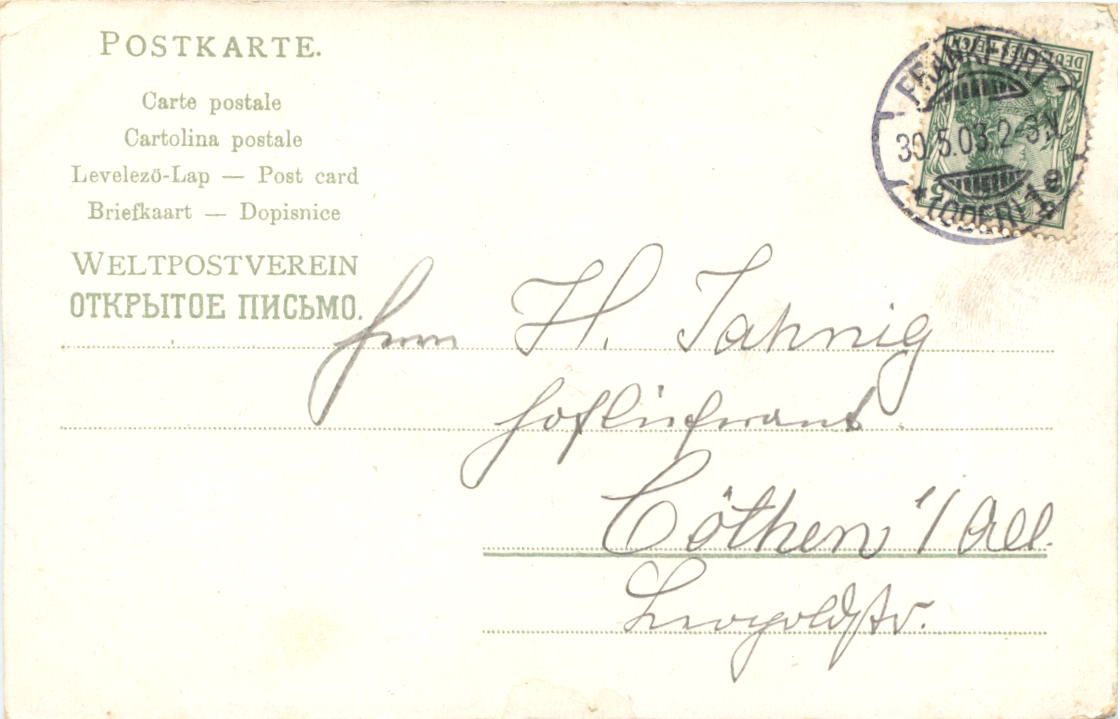 POSTKARTE.
Carte postale
Cartolina postale
Levelezö-Lap — Post card
Briefkaart — Dopisnice
WELTPOSTVEREIN
ОТКРЫТОЕ ПИСЬМО.
DEUTSCHES REICH
FRANKFURT
30.5.03.2-3N.
* (ODER) 1e
Herrn H. Jahnig
Hoflieferant.
Cöthen i/ All.
Leopoldstr.